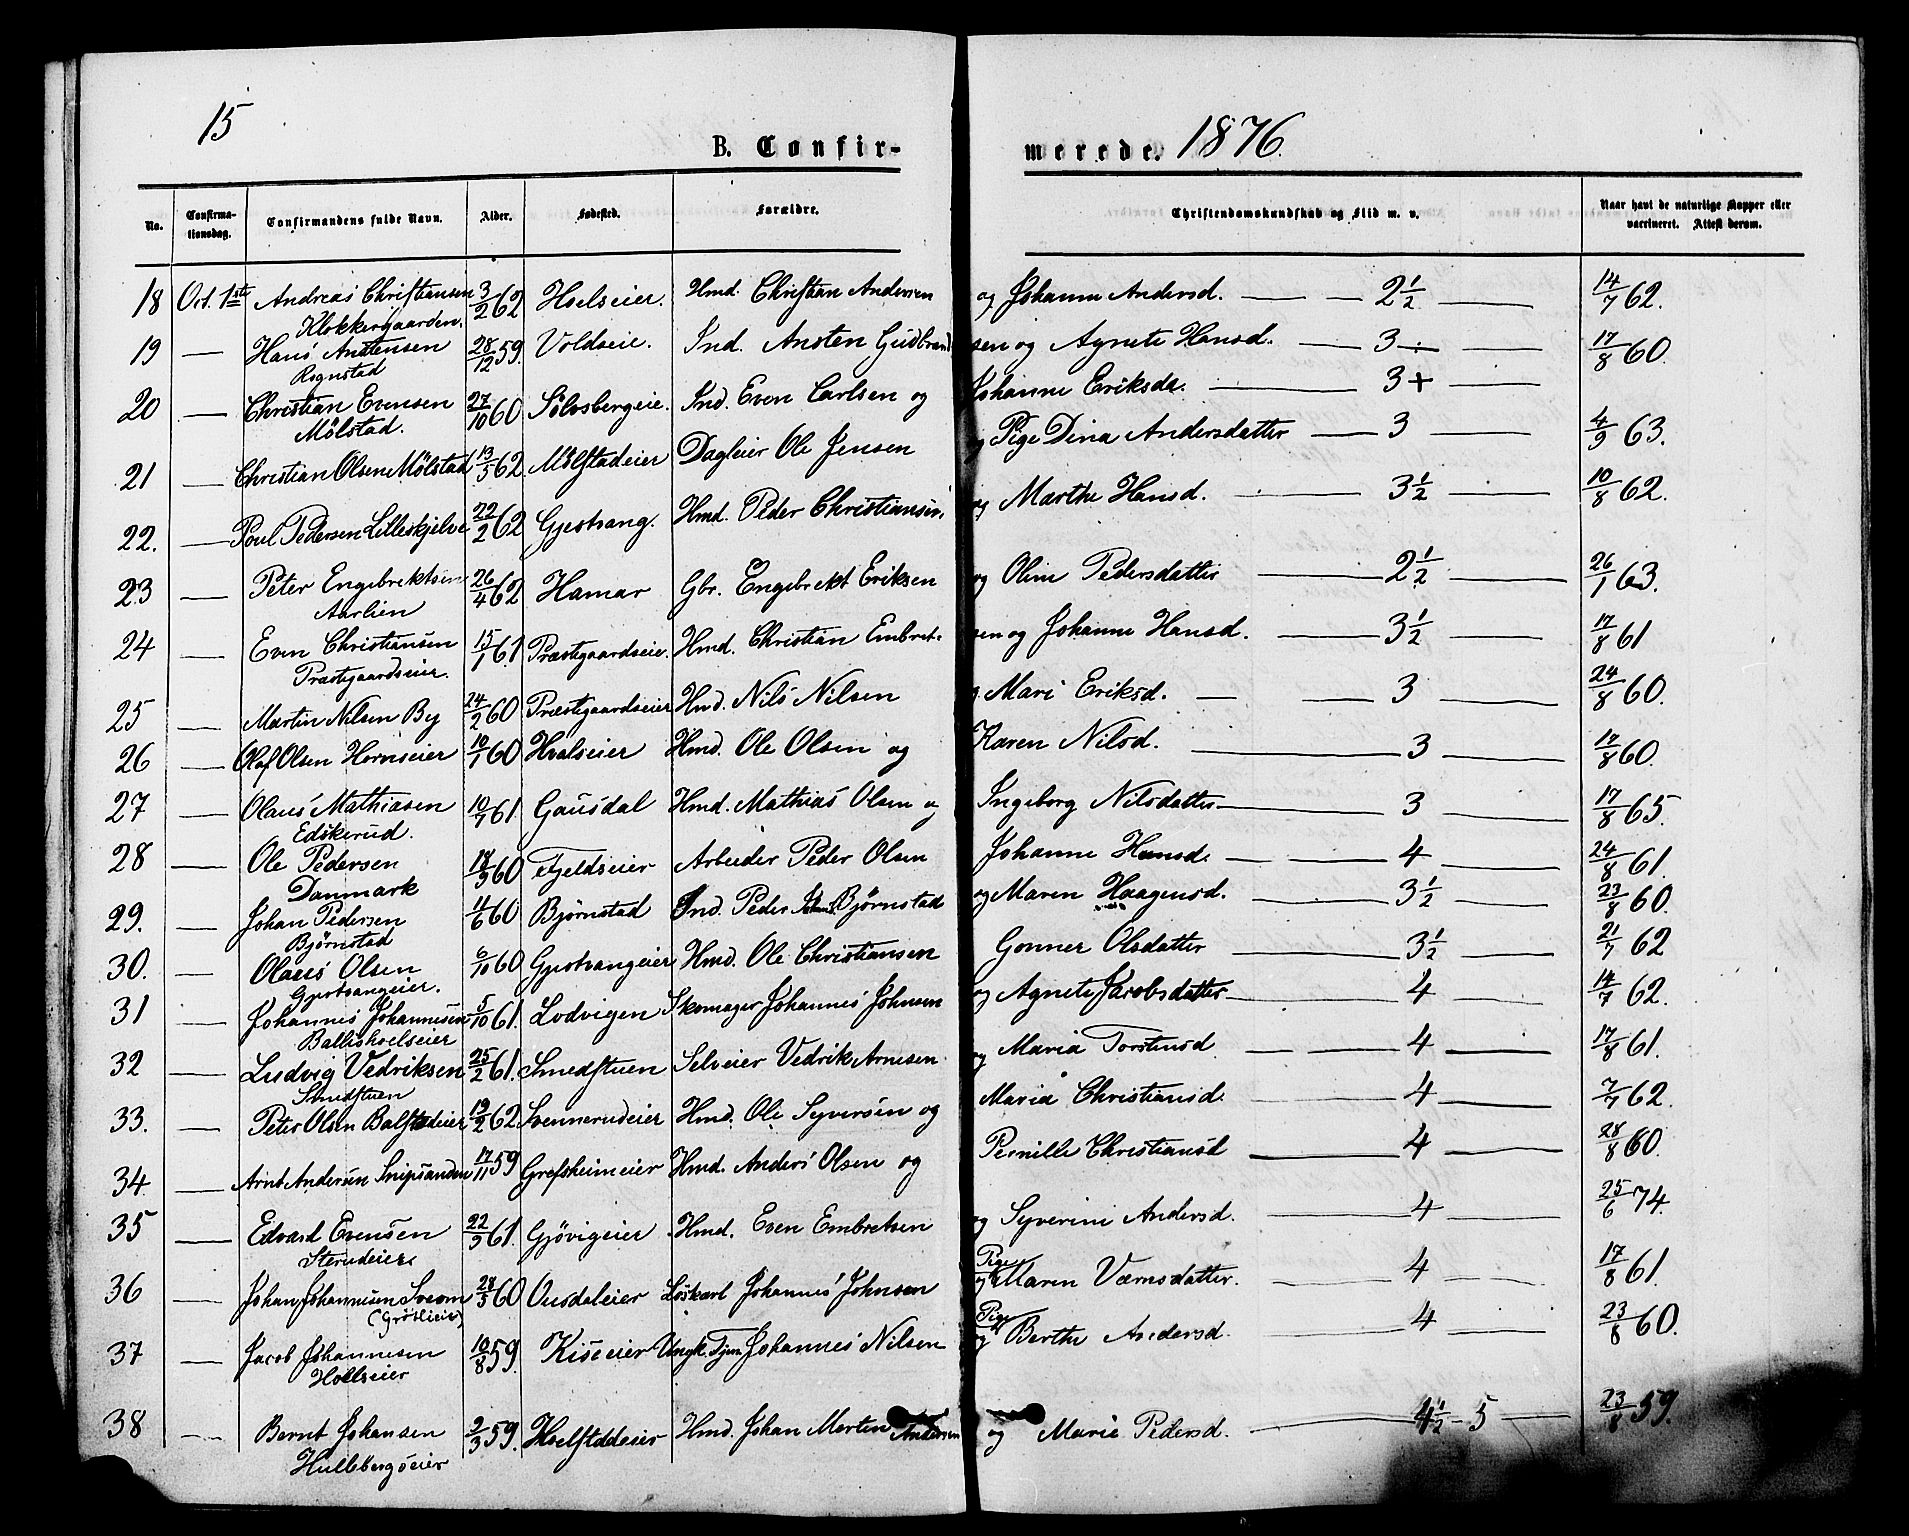 15
B. Confirmerede. 1876.
No. Confirmationsdag. Confirmandens fulde Navn. Alder. Fødested. Forældre. Christendomskundskab og Flid m. v. Naar havt de naturlige Kopper eller vaccineret. Attest derom.
18 Oct. 1ste Andreas Christiansen 3/2 62 Hoelseier. Hmd. Christian Andersen og Johanne Andersd. — — 2 1/2 — 14/7 62.
Klokkergaarden.
19 — Hans Anstensen 28/12 59. Voldseie. Ind. Ansten Gudbrandsen og Agnete Hansd. — 3 ÷ — 17/8 60.
Rognstad
20 — Christian Evensen 27/10 60 Sölvsbergeie. Ind. Even Carlsen og Johanne Eriksda. — 3 + —
Mölstad.
21 — Christian Olsen Mölstad 13/5 62. Mölstadeier Dagleier Ole Jensen og Pige Dina Andersdatter — 3 — 4/9 63.
22. — Poul Pedersen Lilleskjelve 22/2 62 Gjestvang. Hmd. Peder Christiansen og Marthe Hansd. — 3 1/2 — 10/8 62.
23 — Peter Engebrektsen 26/4 62 Hamar Gbr. Engebrekt Eriksen og Oline Pedersdatter — 2 1/2 — 26/1 63.
Aarlien
24 — Even Christiansen 15/1 61 Præstegaardseie. Hmd. Christian Embretsen og Johanne Hansd. — 3 1/2 — 17/8 61
Præstegaardseier.
25 — Martin Nilsen By 24/2 60 Præstegaardseier Hmd. Nils Nilsen og Mari Eriksd. — 3 — 24/8 60.
26 — Olaf Olsen Hornseier 10/1 60 Hvalseier Hmd. Ole Olsen og Karen Nilsd. — 3 — 17/8 60.
27 — Olaus Mathiasen 10/7 61. Gausdal Hmd. Mathias Olsen og Ingeborg Nilsdatter — 3 — 17/8 65.
Edskerud.
28 — Ole Pedersen 18/9 60 Fjeldseier Arbeider Peder Olsen Johanne Hansd. — 4 — 24/8 61.
Danmark
29. — Johan Pedersen 11/6 60 Bjørnstad Ind. Peder Bjørnstad og Maren Haagensd. — 3 1/2 — 23/8 60.
Bjørnstad
30. — Olaus Olsen 6/10 60 Gjestvangeier Hmd. Ole Christiansen Gonner Olsdatter — 3 1/2 — 21/7 62
Gjestvangeier.
31 — Johannes Johannesen 5/10 61. Lodvigen Skomager Johannes Johnsen og Agnete Jacobsdatter — 4 — 14/7 62.
Ballishoelseier
32 — Ludvig Vedriksen 25/2 61. Smedstuen Selveier Vedrik Arnesen og Maria Torstensd — 4 — 17/8 61.
Smedstuen
33. — Peter Olsen Balstadeier 19/2 62 Svennerudeier Hmd. Ole Syversen og Maria Christiansd. — 4 — 7/7 62.
34. — Arnt Andersen Snipsanden 17/11 59 Grefsheimeier Hmd. Anders Olsen og Pernille Christiansd — 4 — 28/8 60.
35 — Edvard Evensen 22/9 61. Gjövigeier Hmd. Even Embretsen og Syverine Andersd. — 4 — 25/6 74.
Sterudeier
36 — Johan Johannesen Sveom 28/5 60 Ousdaleier Löskarl Johannes Johnsen og Pige Maren Værnsdatter. — 4 — 17/8 61.
(Grötlieie)
37 — Jacob Johannesen 10/8 59. Kiseeier Ungk. Tjen. Johannes Nilsen og Pige Berthe Andersd. — 4 — 23/8 60.
Hollseier
38 — Bernt Johansen 2/3 59. Hoelstadeier Hmd. Johan Martin Andersen og Marie Pedersd. — 4 1/2 - 5 — 23/8 59.
Hullebergseier